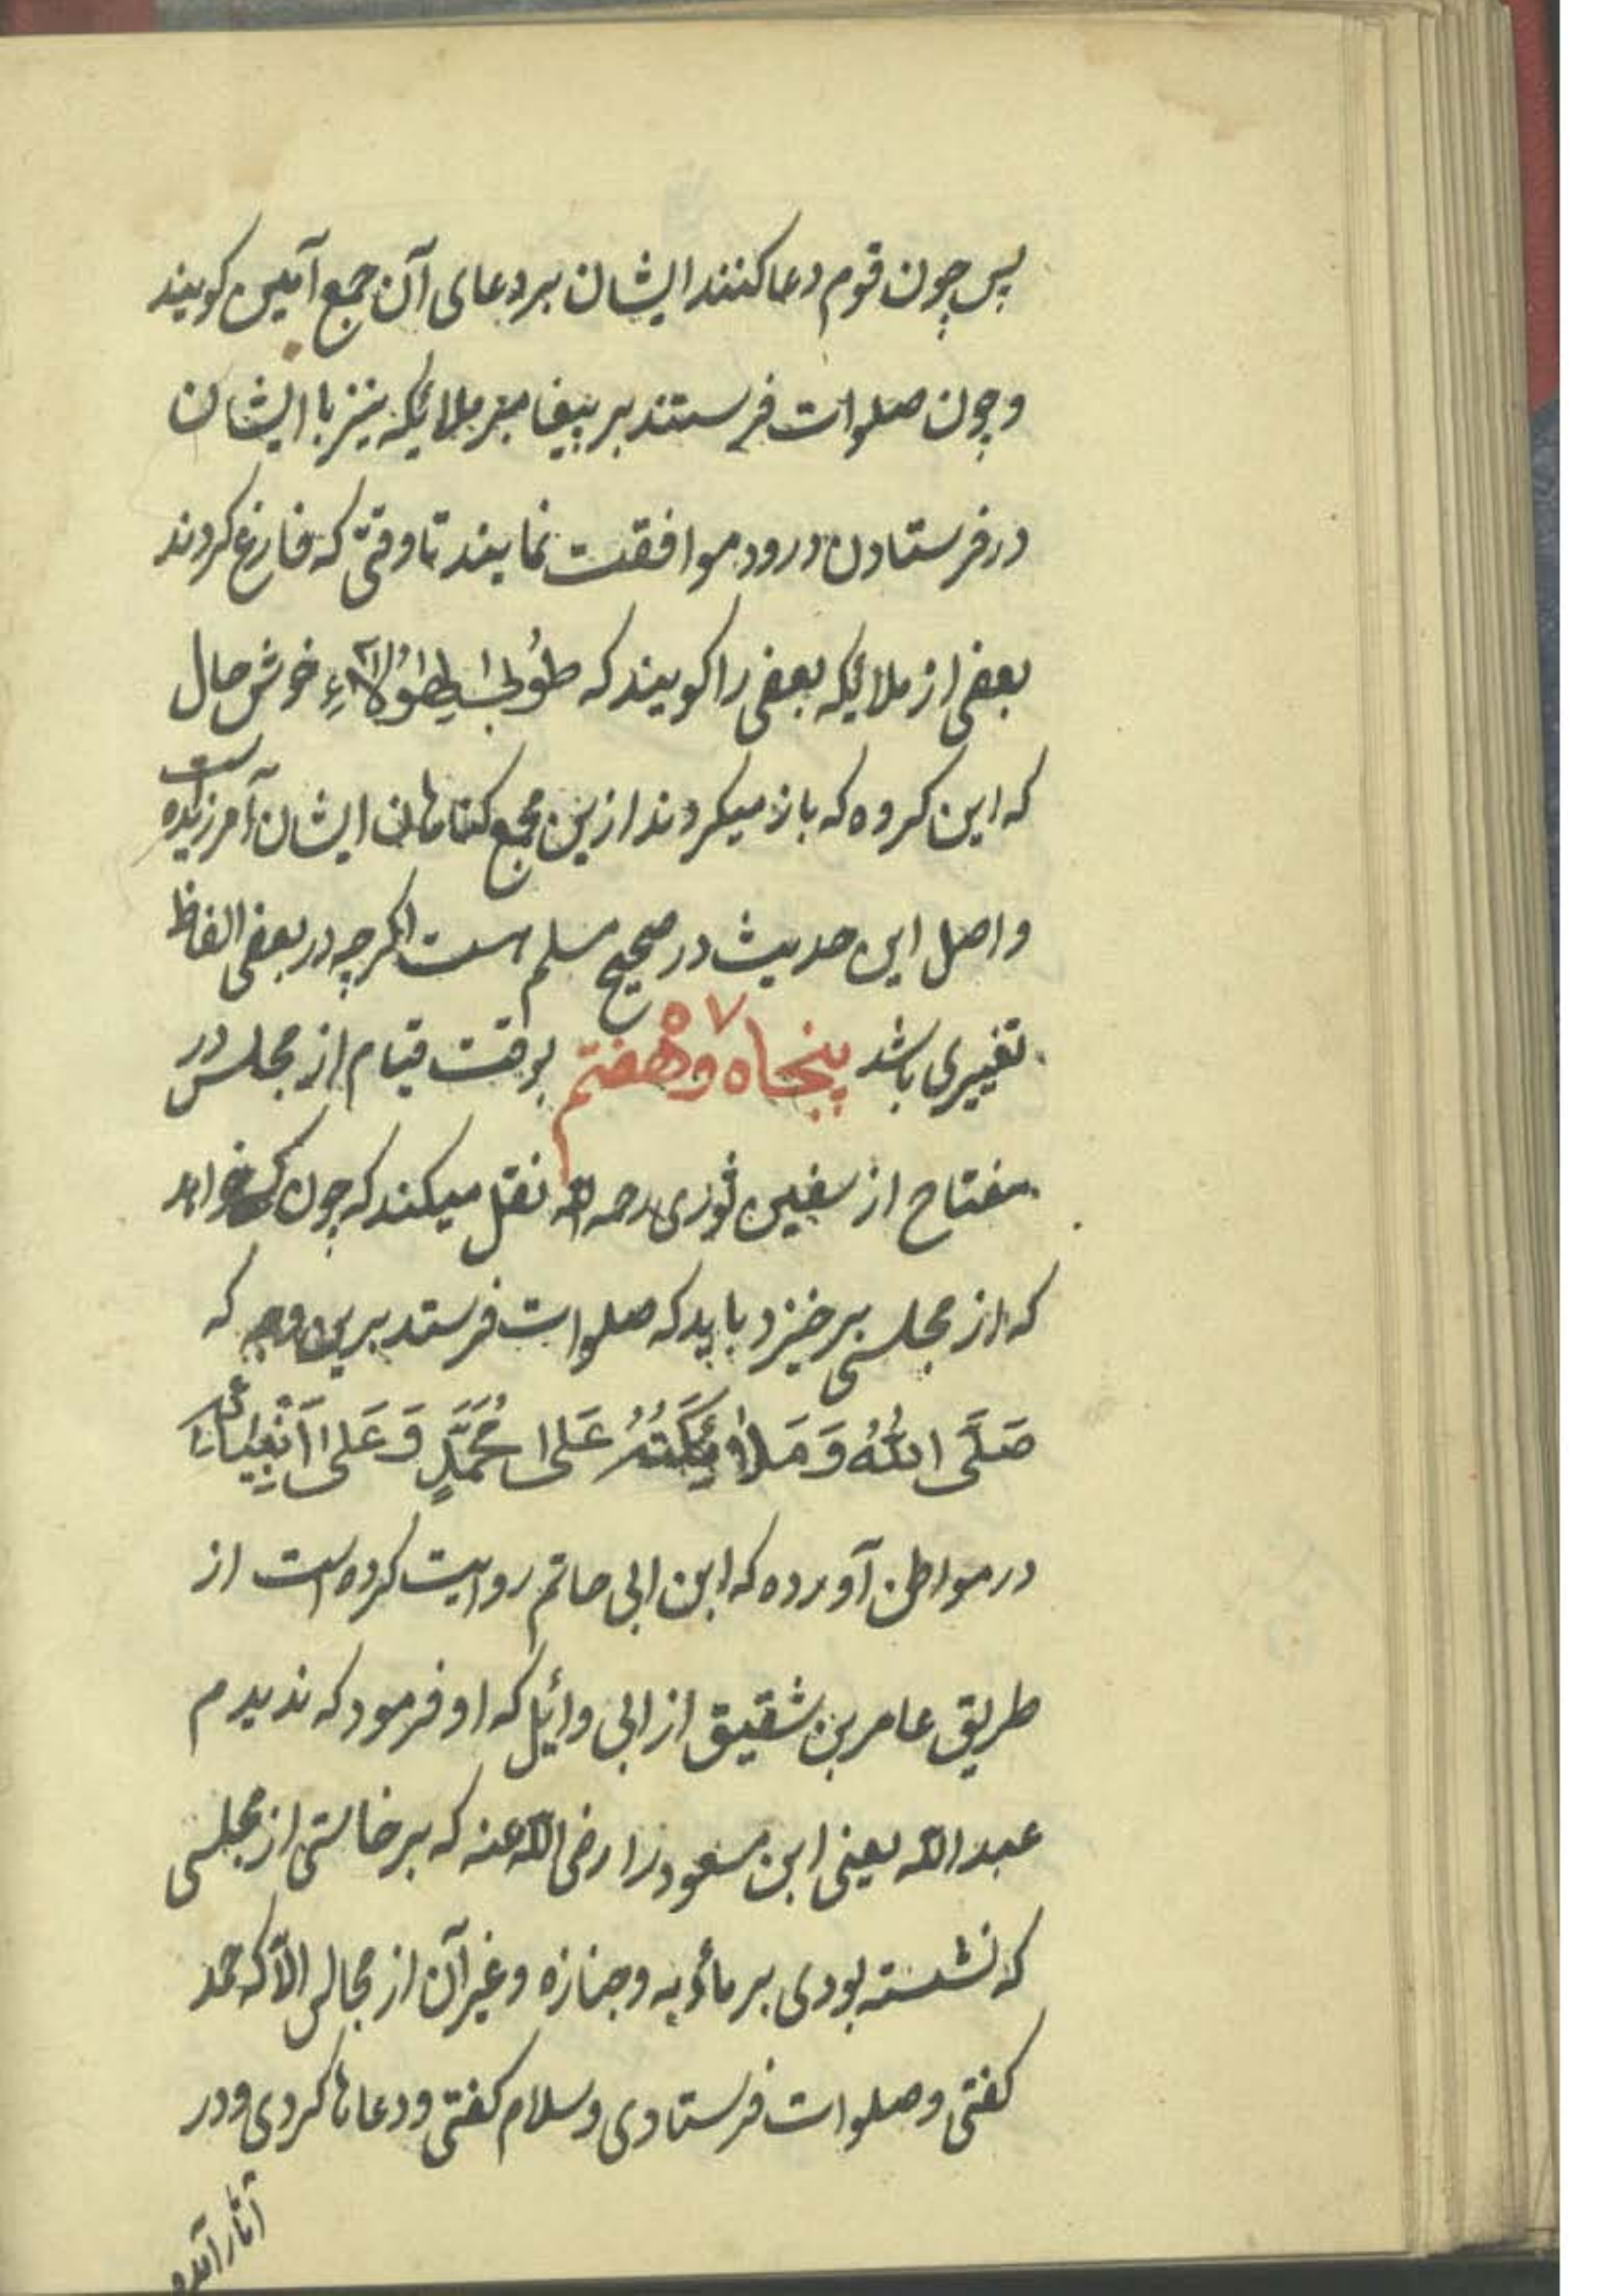 پس چون قوم دعا کنند ایشان بر دعای آن جمع آمین کویند
وچون صلوات فرستند بر پیغامبر ملائکه نیز با ایشان
در فرستادن درود موافقت نمایند تا وقتی که فارغ کردند
بعضی از ملائکه بعضی را کویند که طُوبٰی لِهٰؤُلَاءِ خوش حال
که این کروه که باز میکردند ازین مجمع کناهان ایشان آمرزیده است
واصل این حدیث در صحیح مسلم هست اکرچه در بعضی الفاظ
تغییری باشد پنجاه وهفتم ۵۷ بوقت قیام از مجلس در
مفتاح از سفین ثوری رحمه الله نقل میکند که چون کسی خواهد
که از مجلسی برخیزد باید که صلوات فرستد برین وجه که
صَلَّی اللهُ وَمَلَائِکَتُهُ عَلٰی مُحَمَّدٍ وَعَلٰی اَنْبِیَائِهِ
در مواطن آورده که ابن ابی حاتم روایت کرده است از
طریق عامر بن شقیق از ابی وائل که او فرمود که ندیدم
عبدالله یعنی ابن مسعود را رضی الله عنه که برخاستی از مجلسی
که نشسته بودی بر مأدبه وجنازه وغیر آن از مجالس الّا که حمد
کفتی وصلوات فرستادی وسلام کفتی ودعاها کردی ودر
آثار آمده